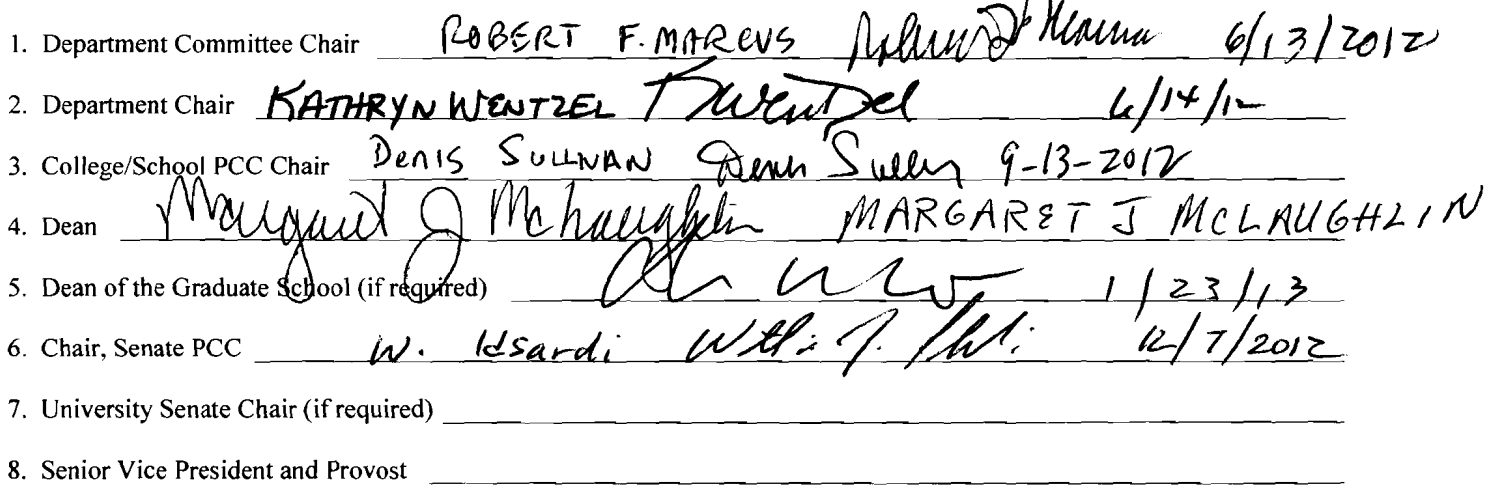 1. Department Committee Chair ROBERT F. MARCUS 6/13/2012
2. Department Chair KATHRYN WENTZEL KWentzel 6/14/12
3. College/School PCC Chair Denis SULLIVAN 9-13-2012
4. Dean Margaret J McLaughlin MARGARET J MCLAUGHLIN
5. Dean of the Graduate School (if required) 1/23/13
6. Chair, Senate PCC W. Idsardi 12/7/2012
7. University Senate Chair (if required)
8. Senior Vice President and Provost